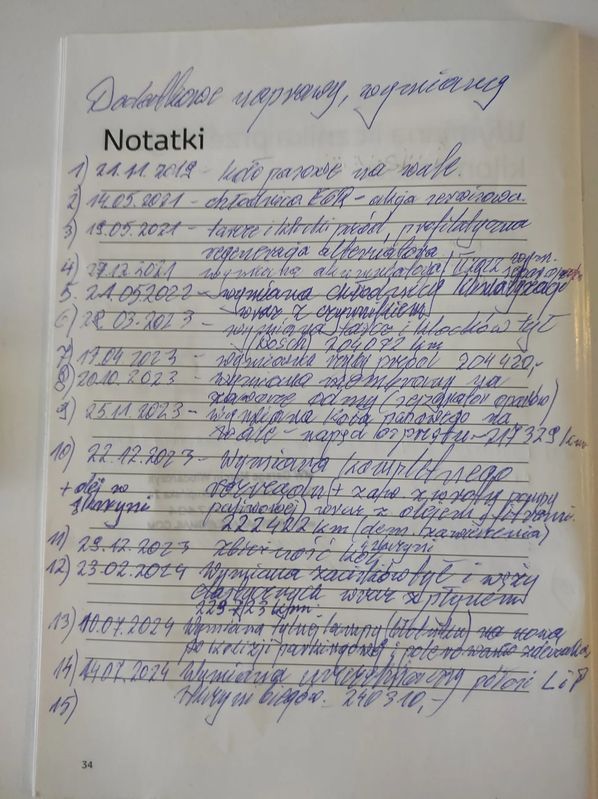 Dodatkowe naprawy, wymiany
Notatki
1) 21.11.2019 - koło pasowe na wale.
2) 14.05.2021 - chłodnica EGR - akcja serwisowa.
3) 19.05.2021 - tarcze i klocki przód, profilaktyczna
regeneracja alternatora
4) 27.12.2021 wymiana akumulatora
5. 21.05.2022 - wymiana chłodnicy klimatyzacji
wraz z czynnikiem
6) 28.03.2023 - wymiana tarcz i klocków tył
(Bosch) 204072 km
7) 17.04.2023 - wymiana przód 204420,-
8) 20.10.2023 - wymiana membrany na
zaworze odmy (separator oparów)
9) 25.11.2023 - wymiana koła pasowego na
wale - napęd osprzętu - 217329 km
10) 22.12.2023 - Wymiana kompletnego
+ olej w
skrzyni
rozrządu (+ zaw. zwrotny pompy
paliwowej) wraz z olejem i filtrami.
222422 km (dem. zawieszenia)
11) 29.12.2023 zbieżność kół
12) 23.02.2024 Wymiana zacisków tył i węży
elastycznych wraz z płynem
13) 10.07.2024 Wymiana tylnej lampy na nową
po kolizji parkingowej i
14) 14.07.2024 Wymiana półosi L i P
15) 240310,-
34